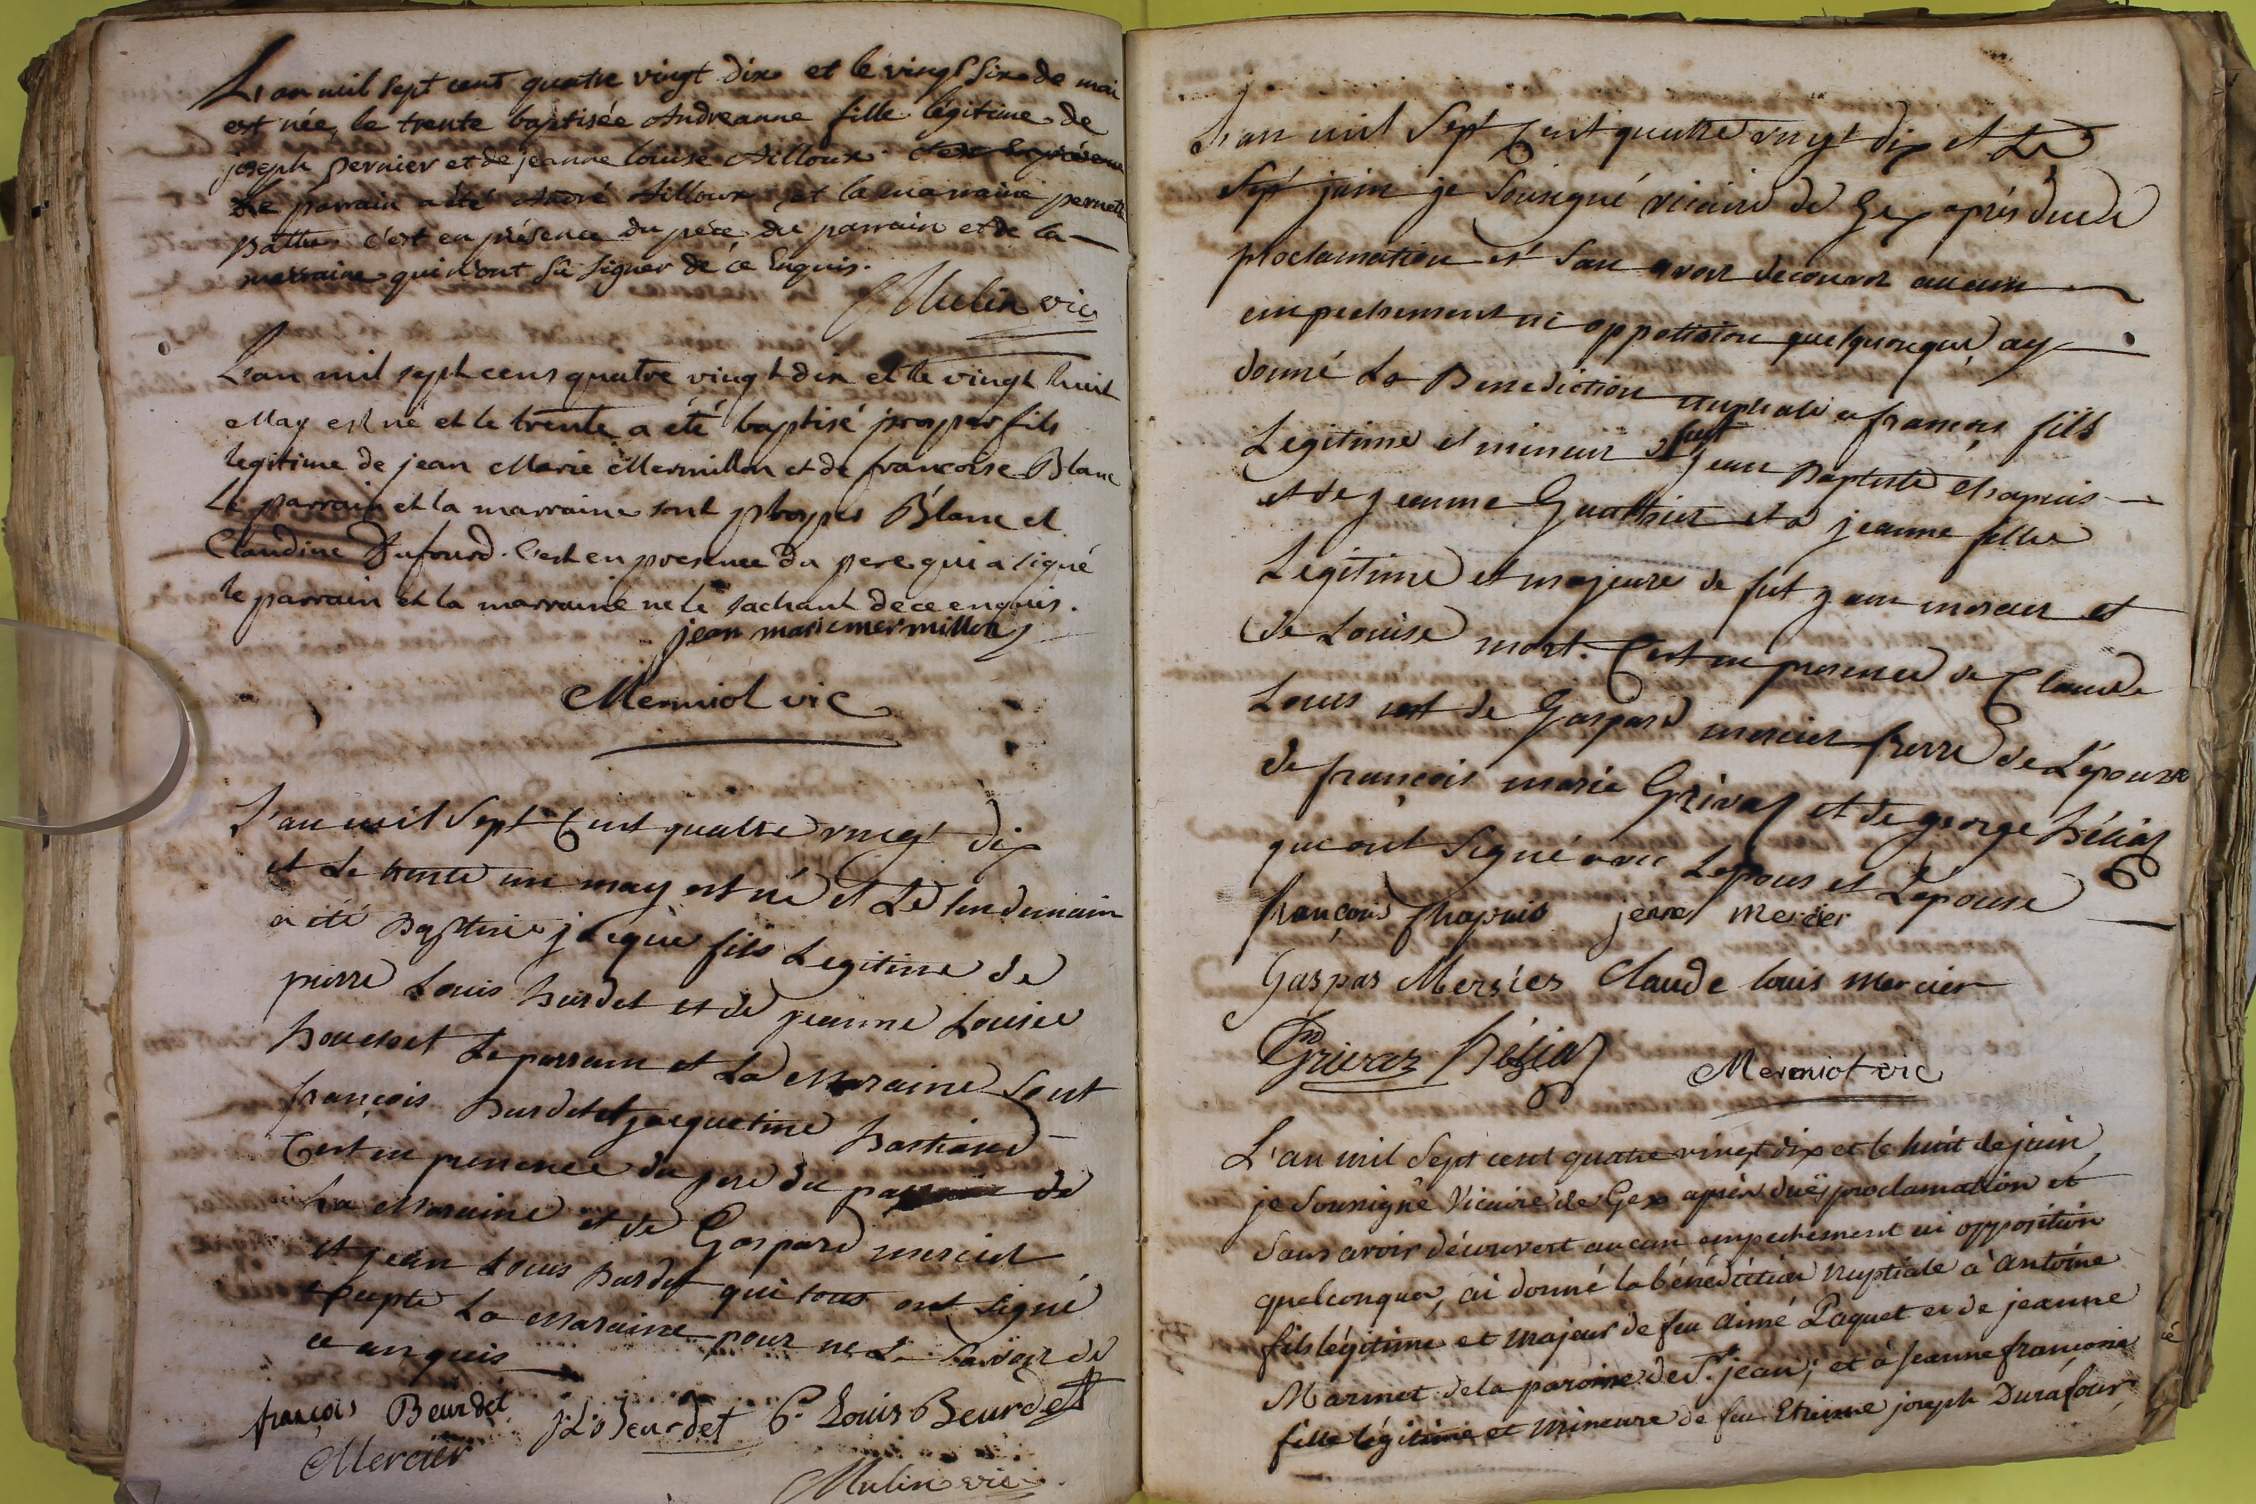 L'an mil sept cent quatre vingt dix et le vingt six de mai
est née, le trente baptisée Andreanne fille légitime de
joseph pernier et de jeanne louise Ailloux. c'est en présence
Le parrain a été André Ailloux et la marraine pernette
c'est en présence du père du parrain et de la
marraine qui n'ont sû signer de ce Enquis.
Mulin vic
L'an mil sept cens quatre vingt dix et le vingt huit
May est né et le trente a été baptisé prosper fils
legitime de jean Marie Mermillon et de francoise Blanc
Le parrain et la marraine sont prosper Blanc et
Claudine Dufourd. C'est en presence du pere qui a signé
le parrain et la marraine ne le sachant de ce enquis.
jean marie mermillon
Mermiol vic
L'an mil Sept Cent quatre vingt dix
et Le trente un may est né et Le lendemain
a été Baptisé jacque fils Legitime de
pierre Louis burdet et de jeanne Louise
bouchet Le parrain et La Maraine sont
françois burdet et jacquetine bastians
C'est en presence du pere du parrain de
La Maraine et de Gaspard mercier
et jean Louis burdet qui tous ont signé
Excepté La Maraine pour ne Le savoir de
ce anquis
françois Beurdet J: Ls Beurdet P. Louis Beurdet
Mercier
Mulin vic
L'an mil Sept Cent quatre vingt dix et Le
Sept juin je Sousigné vicaire de Gex après due
proclamation et San avoir decouvor aucun
empechement ni oppotision quelquonque ay
donné La Benediction nuptiale a françois fils
Legitime et mineur de fut jean Baptiste Chapuis
et de jeanne Gauthier et a jeanne fille
Legitime et majeure de fut jean mercier et
de Louise mort. C'est en presence de Claude
Louis et de Gaspard mercier frerre de L'épouse
de françois marie Grivaz et de george hélias
qui ont signé avec L'epous et L'épouse
françois Chapuis jenne mercier
Gaspar Mersier Claude louis mercier
Grivaz hélias
Mermiot vic
L'an mil Sept cent quatre vingt dix et le huit de juin,
je Sousigné Vicaire de Gex après duës proclamation et
Sans avoir découvert aucun empechement ni opposition
quelconque, ai donné la bénédiction Nuptiale à Antoine
fils légitime et Majeur de feu Aimé Paquet et de jeanne
Marmet de la paroisse de St. jean, et à Jeanne françoise
fille légitime et Mineure de feu Etienne joseph Durafour,